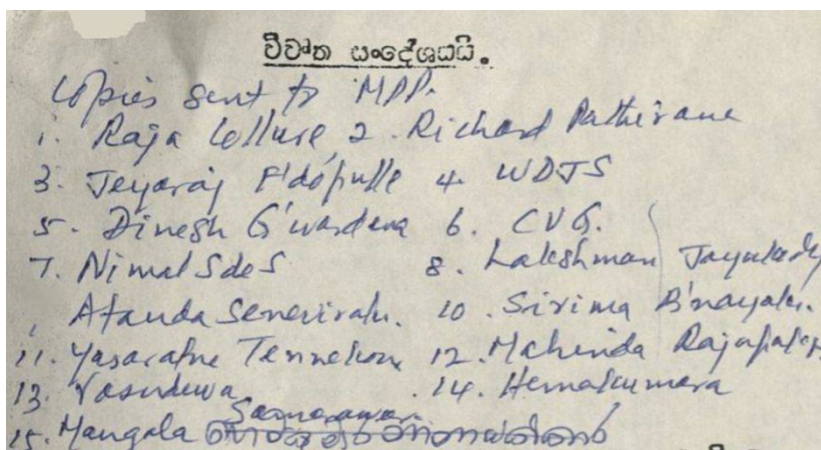 විවෘත සංදේශයයි.
Copies sent to MPP.
1. Raja Collure 2. Richard Pathirane
3. Jeyaraj F'dopulle 4. WDJS
5. Dinesh G'wardena 6. CVG.
7. Nimal S de S 8. Lakshman Jayakody
Atauda Seneviratn. 10. Sirima B'nayake.
11. Yasaratne Tennekoon 12. Mahinda Rajapakse
13. Vasudewa 14. Hemakumara
Samaraweera
15. Mangala